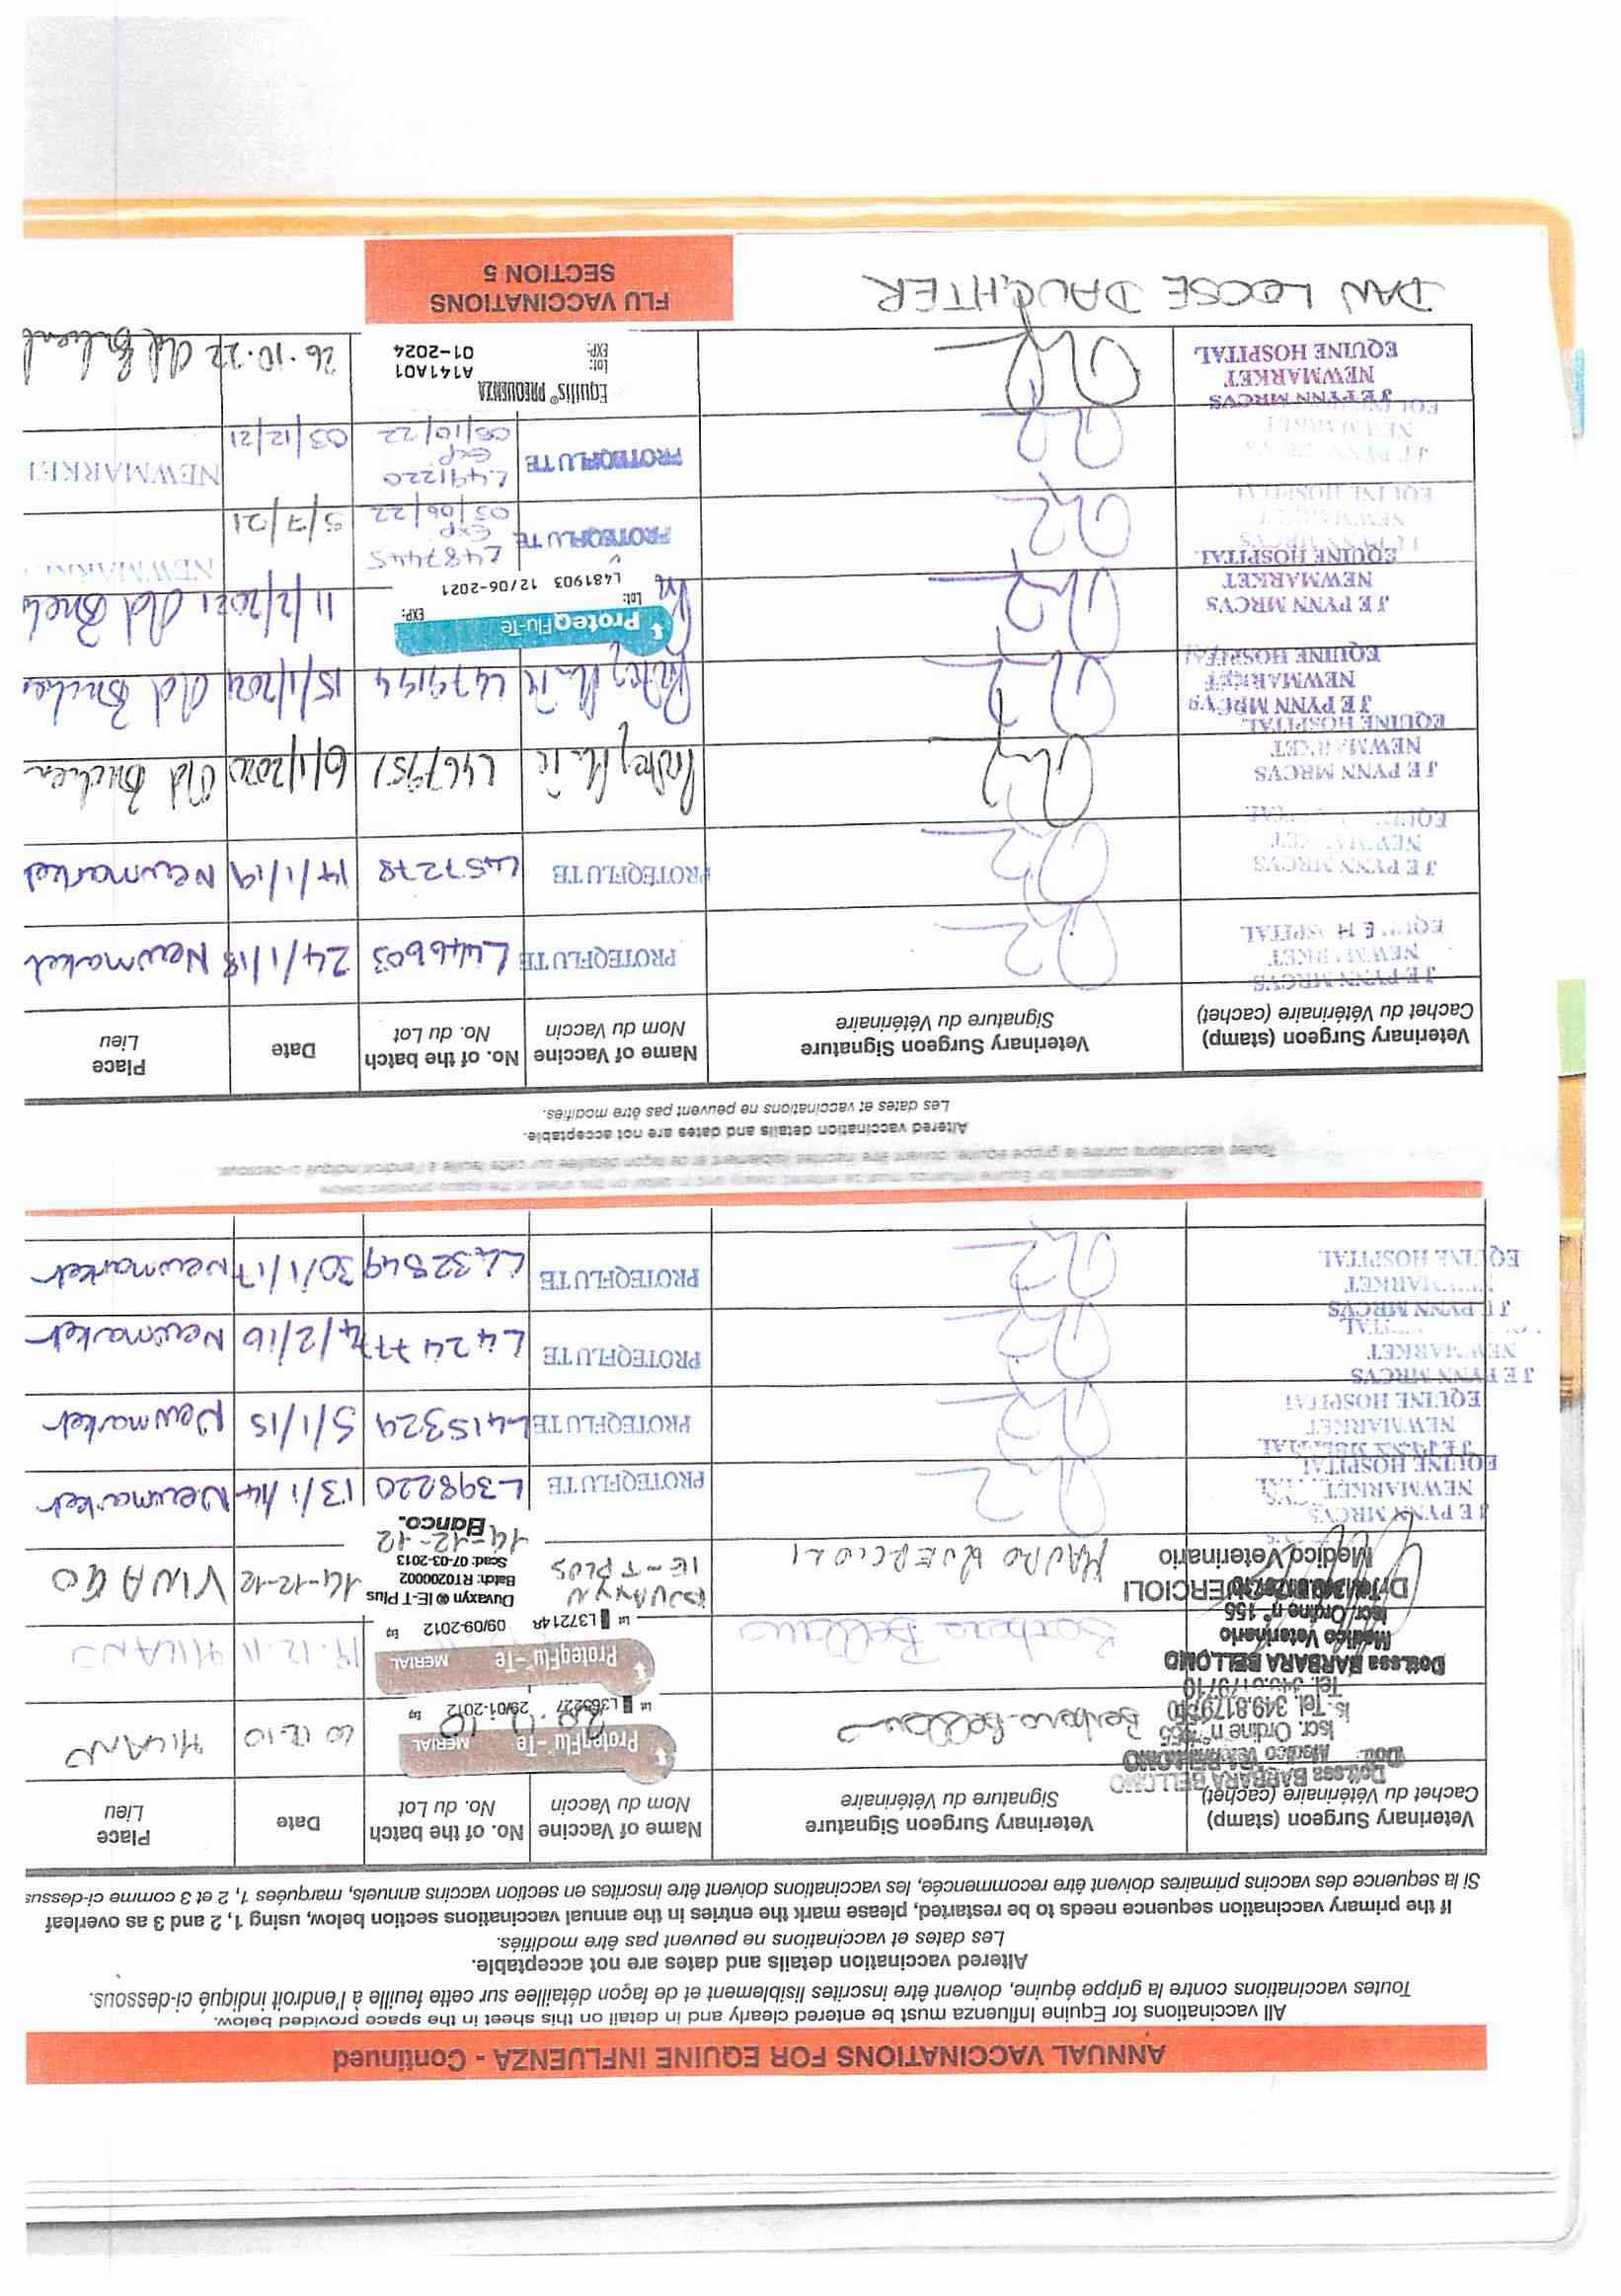 ANNUAL VACCINATIONS FOR EQUINE INFLUENZA - Continued
All vaccinations for Equine Influenza must be entered clearly and in detail on this sheet in the space provided below.
Toutes vaccinations contre la grippe équine, doivent être inscrites lisiblement et de façon détaillee sur cette feuille à l'endroit indiqué ci-dessous.
Altered vaccination details and dates are not acceptable.
Les dates et vaccinations ne peuvent pas être modifiés.
If the primary vaccination sequence needs to be restarted, please mark the entries in the annual vaccinations section below, using 1, 2 and 3 as overleaf
Si la sequence des vaccins primaires doivent être recommencée, les vaccinations doivent être inscrites en section vaccins annuels, marquées 1, 2 et 3 comme ci-dessus
Place Date No. of the batch Name of Vaccine Veterinary Surgeon Signature Veterinary Surgeon (stamp)
Lieu No. du Lot Nom du Vaccin Signature du Vétérinaire Cachet du Vétérinaire (cachet)
MILANO 12.10 ProteqFlu-Te MERIAL Lot L365227 29/01-2012 Exp Barbara Bellomo Dott.ssa BARBARA BELLOMO
Medico Veterinario
Iscr. Ordine n°
Tel. 349.81797
MILANO 12.11 ProteqFlu-Te MERIAL Lot L37214R 09/09-2012 Exp Barbara Bellomo Dott.ssa BARBARA BELLOMO
Medico Veterinario
Iscr. Ordine n° 155
14-12-12 Duvaxyn ® IE-T Plus DUVAXYN MAURO QUERCIOLI QUERCIOLI
Batch: RT0200002 IE-T PLUS Medico Veterinario
Scad: 07-03-2013
14-12-12
Newmarket 13/1/14 L398220 PROTEQFLUTE J E PYNN MRCVS
NEWMARKET
EQUINE HOSPITAL
Newmarket 5/1/15 L415329 PROTEQFLUTE
NEWMARKET
EQUINE HOSPITAL
Newmarket 4/2/16 L42477 PROTEQFLUTE J E PYNN MRCVS
NEWMARKET
Newmarket 30/1/17 L432849 PROTEQFLUTE J E PYNN MRCVS
NEWMARKET
EQUINE HOSPITAL
All vaccinations for Equine Influenza must be entered clearly and in detail on this sheet in the space provided below.
Toutes vaccinations contre la grippe équine, doivent être inscrites lisiblement et de façon détaillee sur cette feuille à l'endroit indiqué ci-dessous.
Altered vaccination details and dates are not acceptable.
Les dates et vaccinations ne peuvent pas être modifiés.
Place Date No. of the batch Name of Vaccine Veterinary Surgeon Signature Veterinary Surgeon (stamp)
Lieu No. du Lot Nom du Vaccin Signature du Vétérinaire Cachet du Vétérinaire (cachet)
Newmarket 24/1/18 L446603 PROTEQFLUTE J E PYNN MRCVS
NEWMARKET
EQUINE HOSPITAL
Newmarket 14/1/19 L457278 PROTEQFLUTE J E PYNN MRCVS
NEWMARKET
Old 6/1/2020 J E PYNN MRCVS
NEWMARKET
EQUINE HOSPITAL
Old 15/1/2021 L479194 J E PYNN MRCVS
NEWMARKET
EQUINE HOSPITAL
Old 11/2/2021 ProteqFlu-Te J E PYNN MRCVS
Lot: EXP: NEWMARKET
L481903 12/06-2021 EQUINE HOSPITAL
NEWMARKET 5/7/21 L487445 PROTEQFLUTE
Exp
03/06/22 EQUINE HOSPITAL
NEWMARKET 03/12/21 L491220 PROTEQFLUTE
exp
05/10/22
26.10.22 Old Equilis® PREQUENZA J E PYNN MRCVS
Lot: A141A01 NEWMARKET
EXP: 01-2024 EQUINE HOSPITAL
FLU VACCINATIONS
SECTION 5
DAW LOOSE DAUGHTER